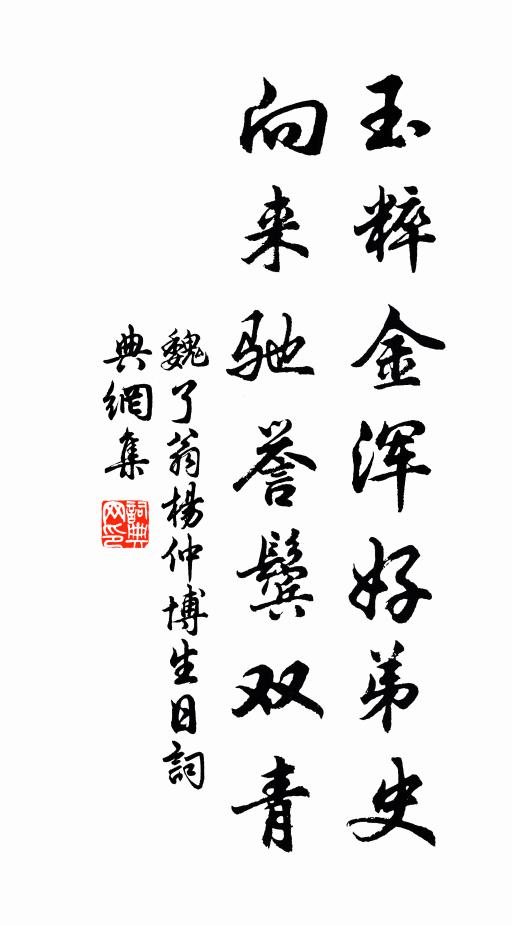 玉粹金浑好弟史
向来驰誉鬓双青
魏了翁楊仲博生日詞
典網集
詞典网印